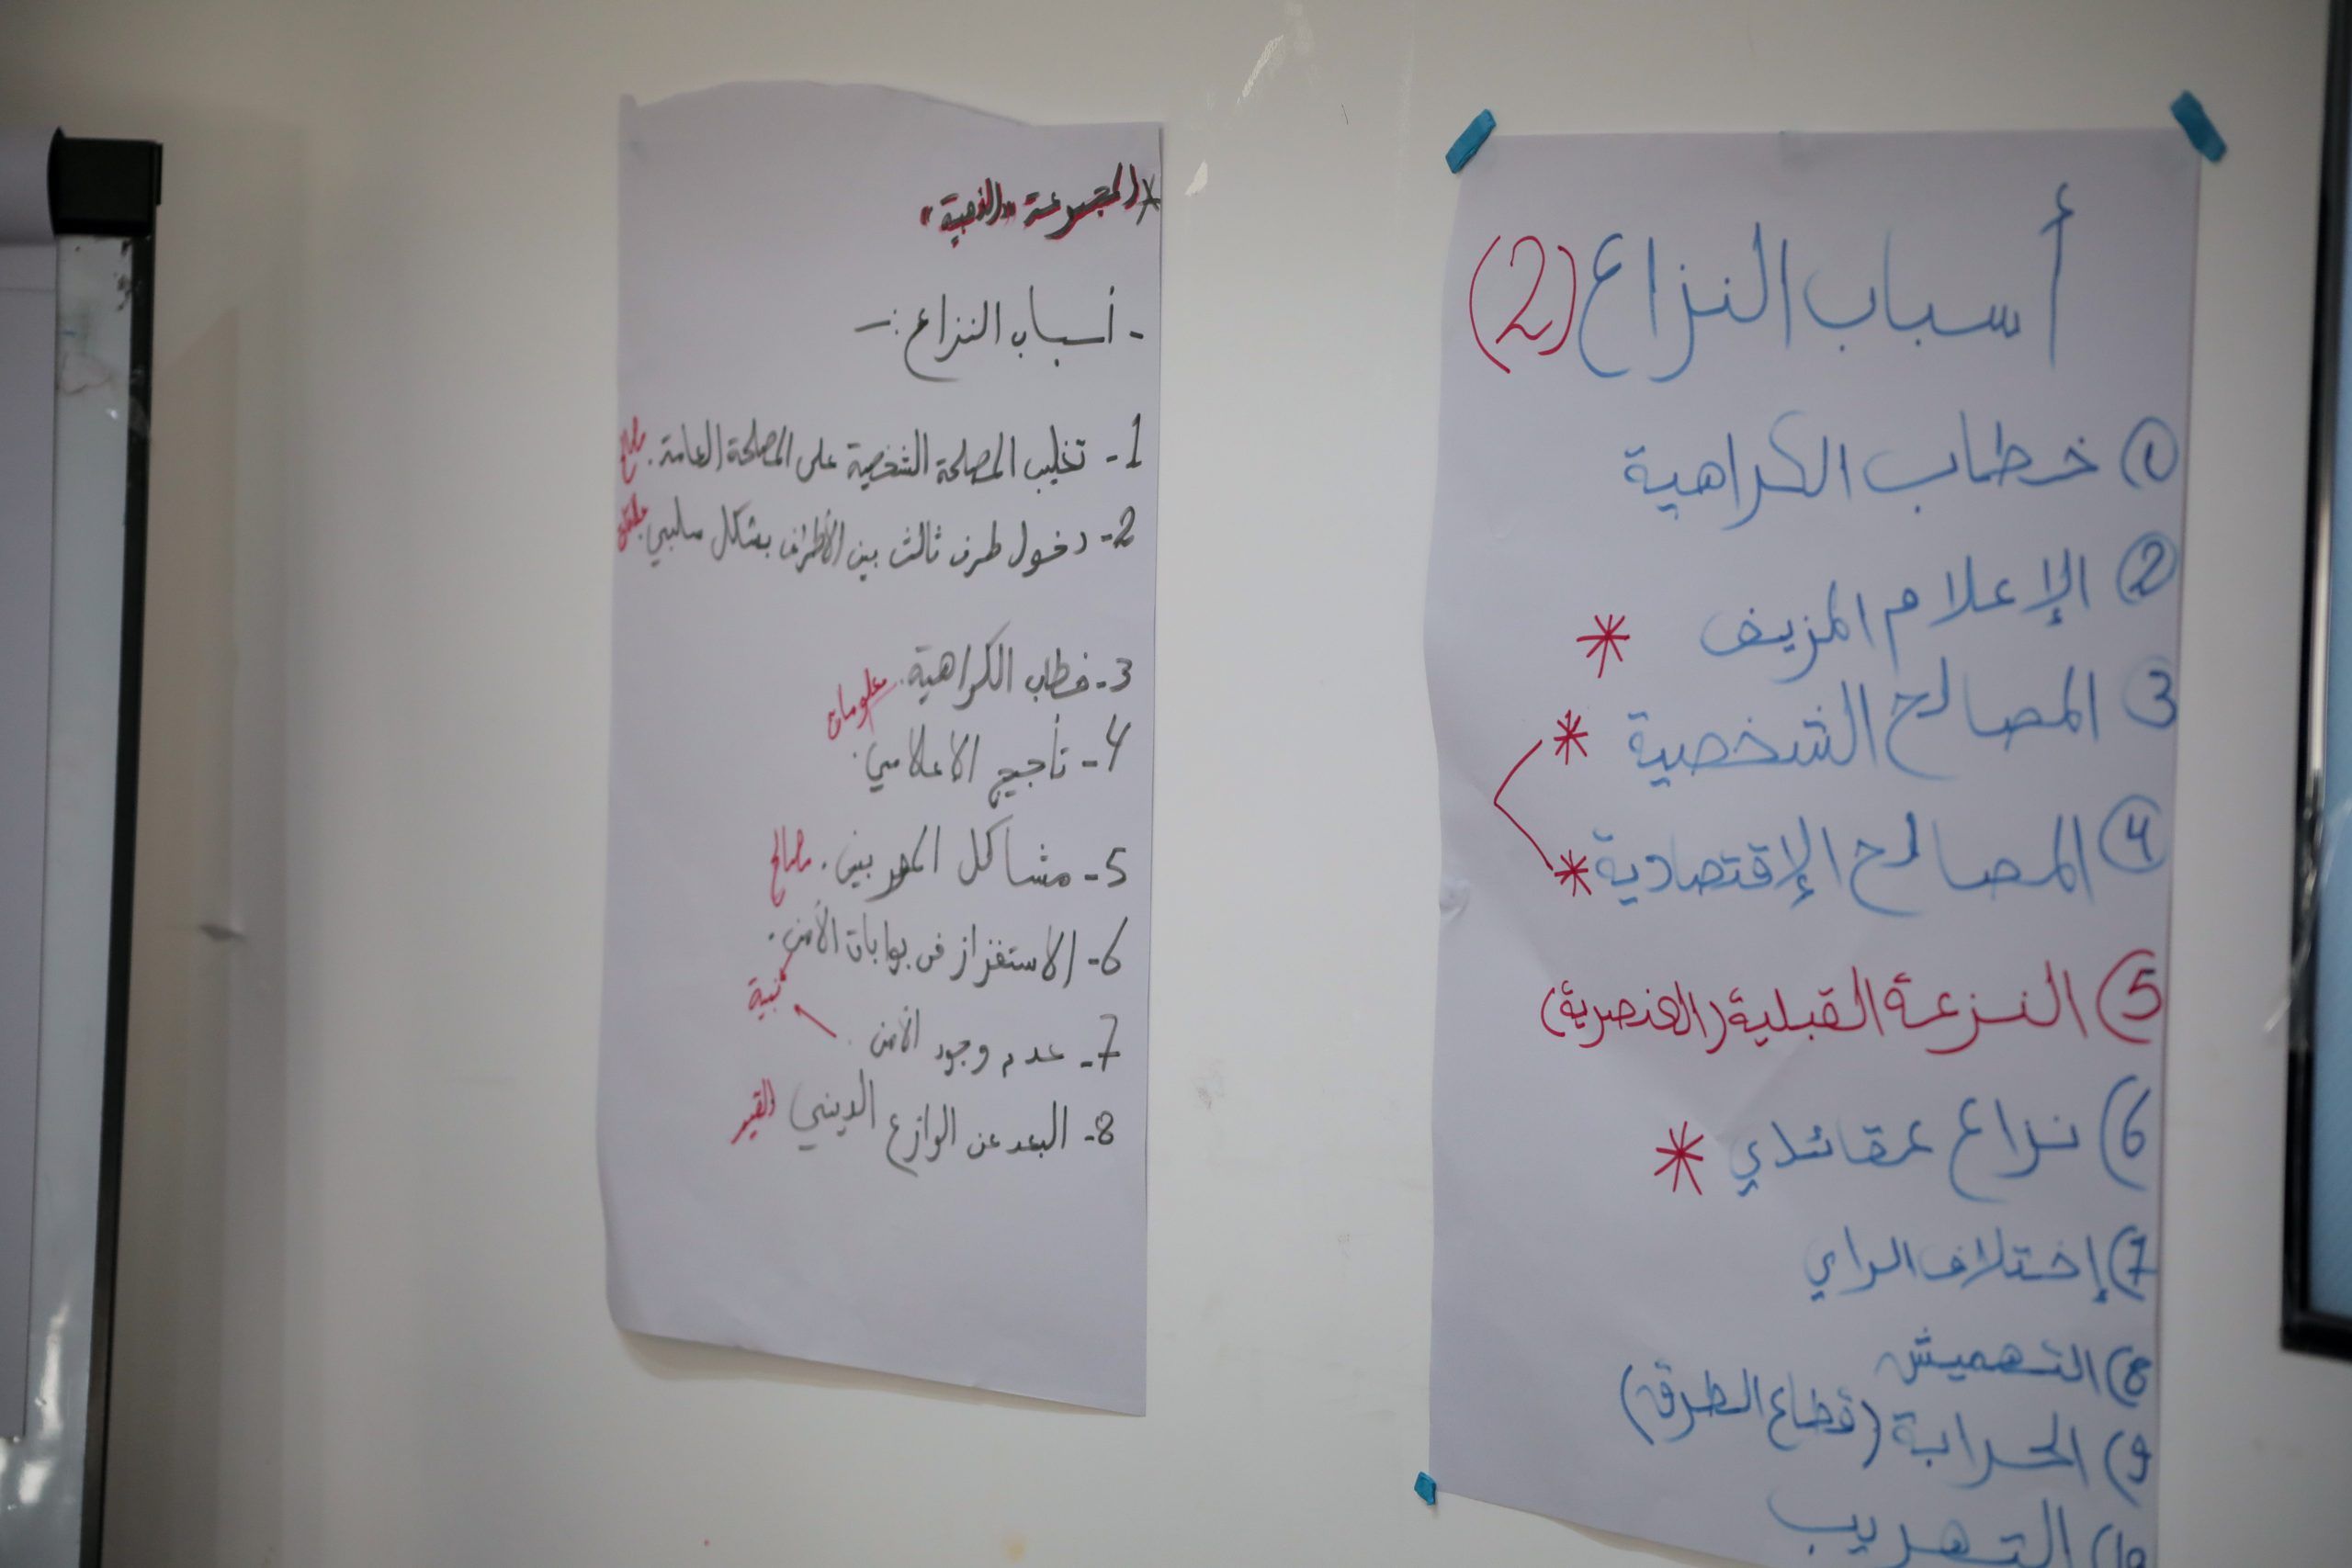 * المجموعة "الذهبية"
- أسباب النزاع :-
1- تغليب المصلحة الشخصية على المصلحة العامة. مصالح
2- دخول طرف ثالث بين الأطراف بشكل سلبي.
3- خطاب الكراهية.
معلومات
4- تأجيج الاعلامي.
5- مشاكل المهربين. مصالح
6- الاستفزاز في بوابات الأمن.
7- عدم وجود الأمن.
8- البعد عن الوازع الديني القيم
أسباب النزاع (2)
① خطاب الكراهية
② الإعلام المزيف *
③ المصالح الشخصية *
④ المصالح الإقتصادية *
5) النزعة القبلية (العنصرية)
6) نزاع عقائدي *
7) إختلاف الراي
8) التهميش
9) الحرابة (قطاع الطرق)
10) التهريب